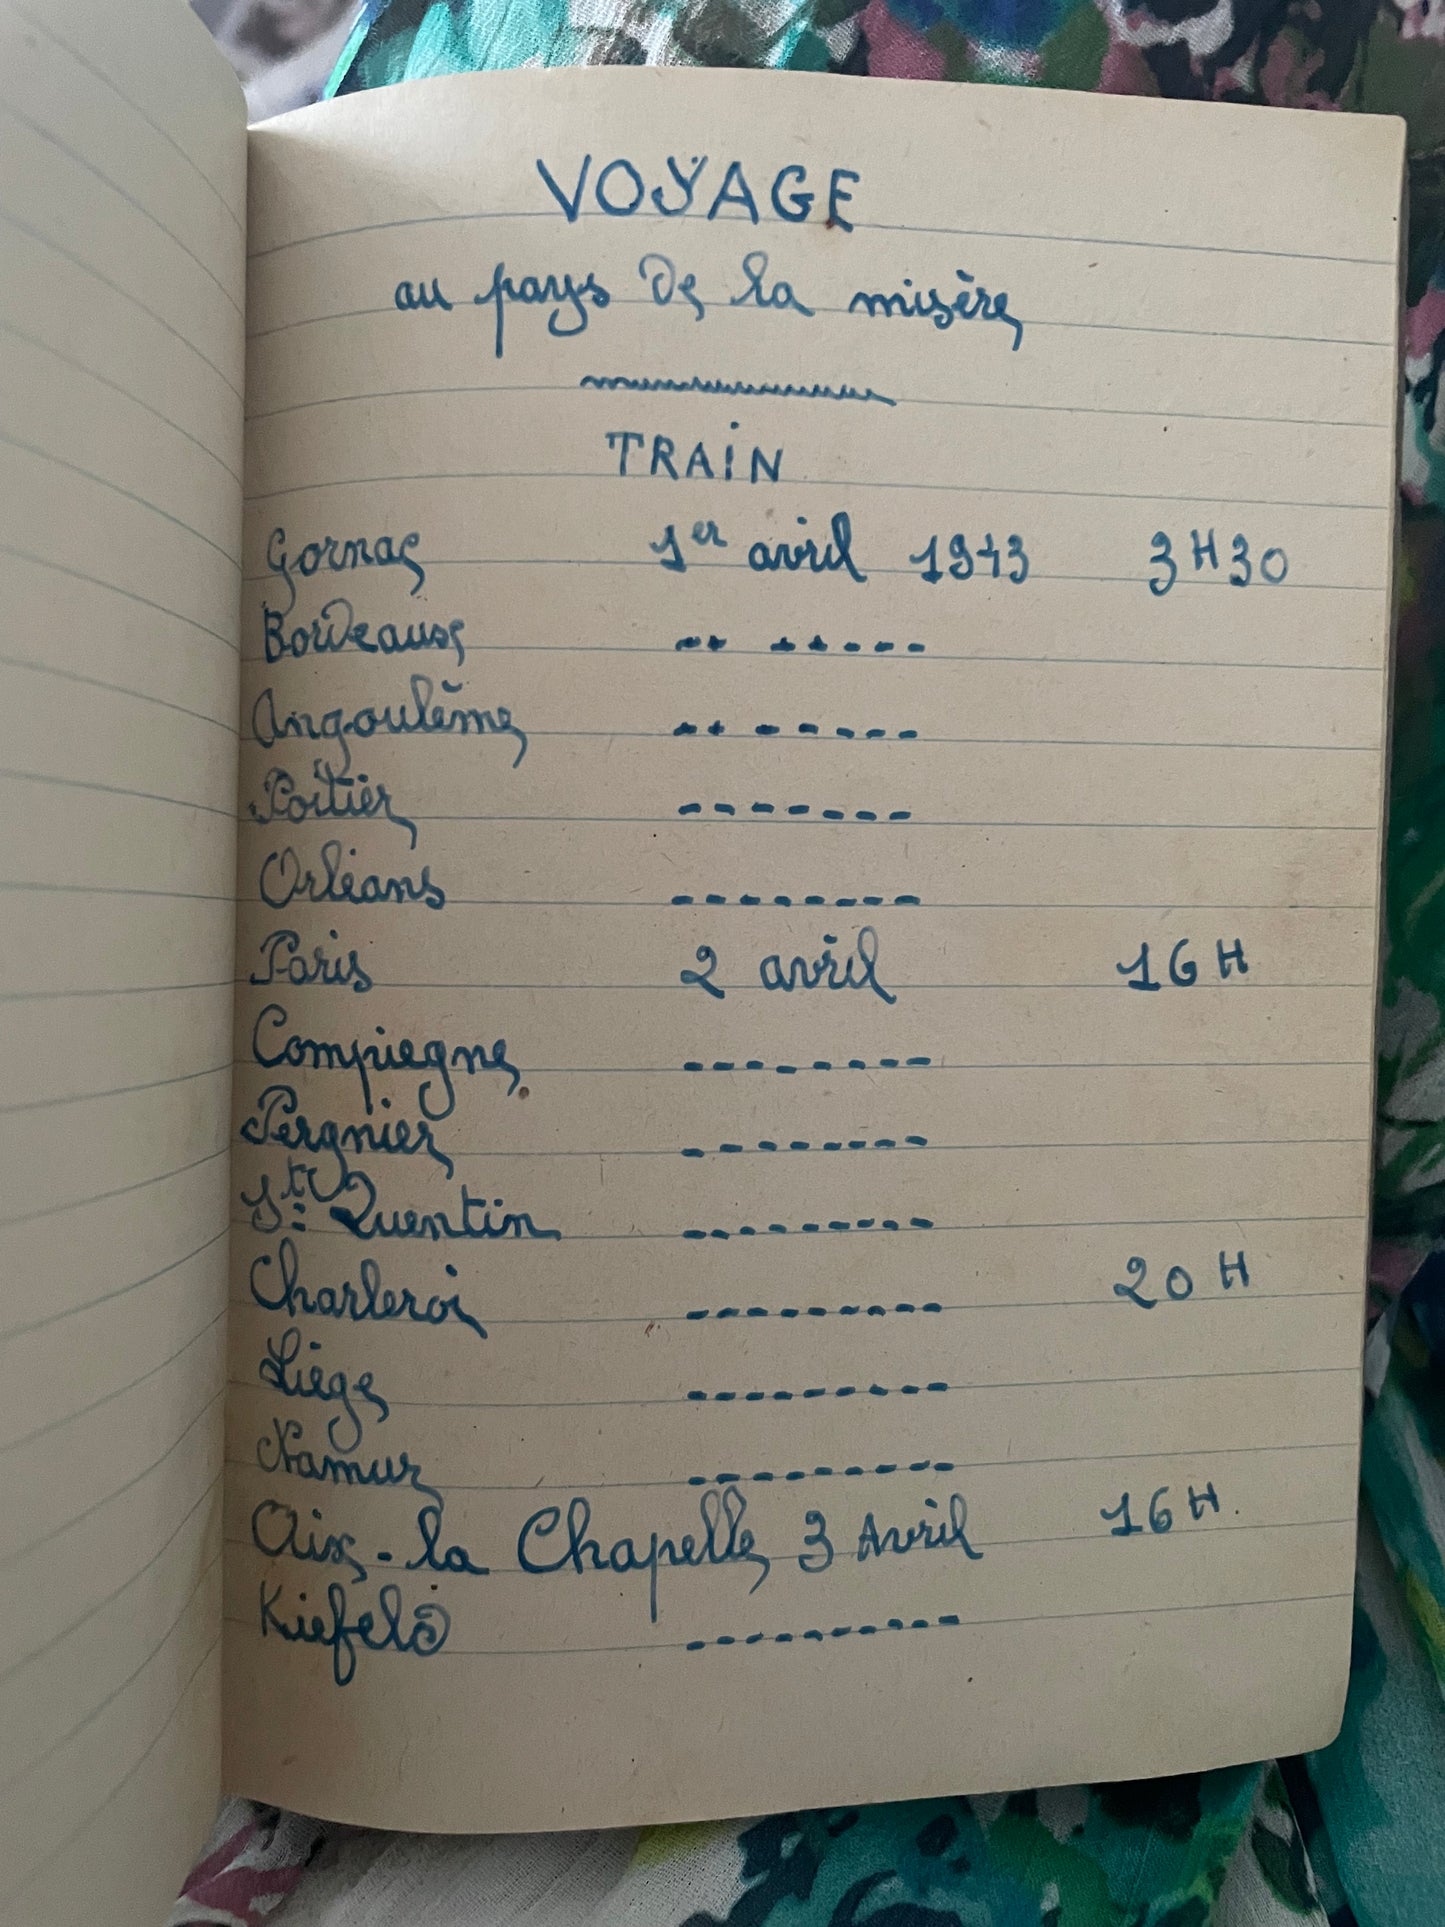 VOYAGE
au pays de la misère
TRAiN
Gornac 1er avril 1943 3H30
Bordeaux -- -- - - -
Angoulème -- - - - - -
Poitier - - - - - - -
Orléans - - - - - - - -
Paris 2 avril 16 H
Compiegne - - - - - - - -
Tergnier - - - - - - - -
St: Quentin - - - - - - - - -
Charleroi - - - - - - - - - 20 H
Liège - - - - - - - - -
Namur - - - - - - - - - -
Aix-la Chapelle 3 Avril 16 H.
Kiefeld - - - - - - - - - -